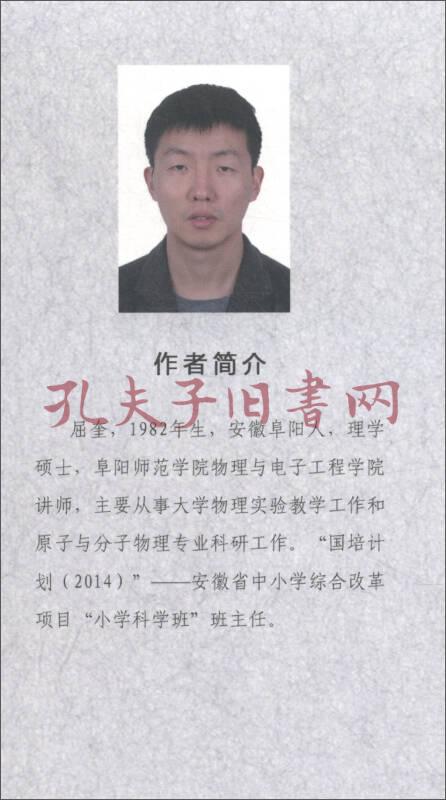 作者简介
孔夫子旧书网
屈奎，1982年生，安徽阜阳人，理学
硕士，阜阳师范学院物理与电子工程学院
讲师，主要从事大学物理实验教学工作和
原子与分子物理专业科研工作。“国培计
划（2014）”——安徽省中小学综合改革
项目“小学科学班”班主任。